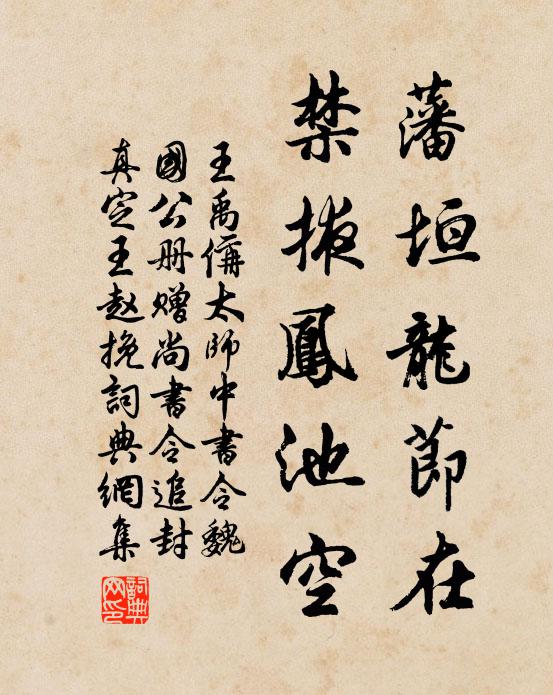 藩垣龍節在
禁掖鳳池空
王禹偁太師中書令魏
國公册贈尚書令追封
真定王趙挽詞典網集
詞典網印